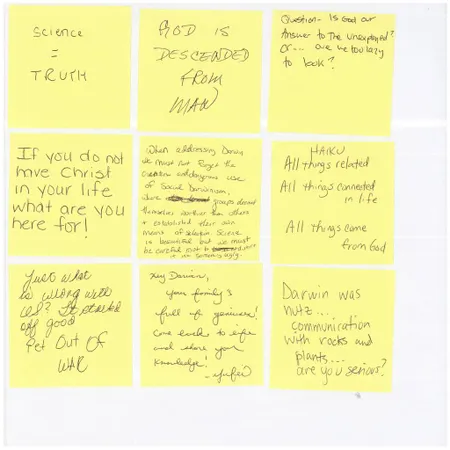 Science
=
TRUTH
GOD IS
DESCENDED
FROM
MAN
Question- Is God our
Answer to The unexplained?
Or... are we too lazy
to look?
If you do not
have Christ
in your life
what are you
here for!
When addressing Darwin
we must not forget the
use
of Social Darwinism,
where groups deemed
themselves worthier than others
& established their own
means of selection. Science
is beautiful but we must
be careful not to
it into something ugly.
HAIKU
All things related
All things connected
in life
All things come
from God
Just what
is wrong with
us? It started
off good
Get Out OF
WAR
Hey Darwin,
your family's
full of geniuses!
Come back to life
and share your
knowledge!
Darwin was
nutz...
communication
with rocks and
plants...
are you serious?